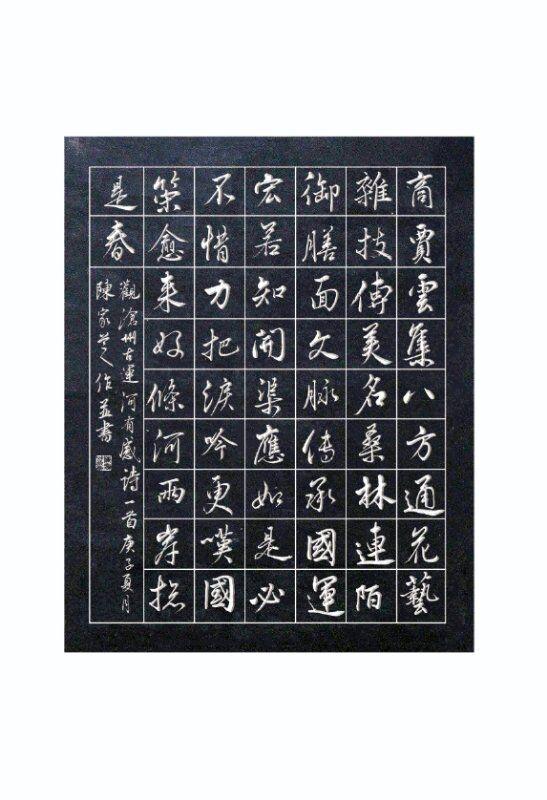 商賈雲集八方通花藝
雜技傳美名桑林連陌
御膳面文脈傳承國運
宏若知開渠應如是必
不惜力把淚吟更嘆國
策愈来好條河兩岸總
是春
觀滄州古運河有感詩一首庚子夏月
陳家芝作並書